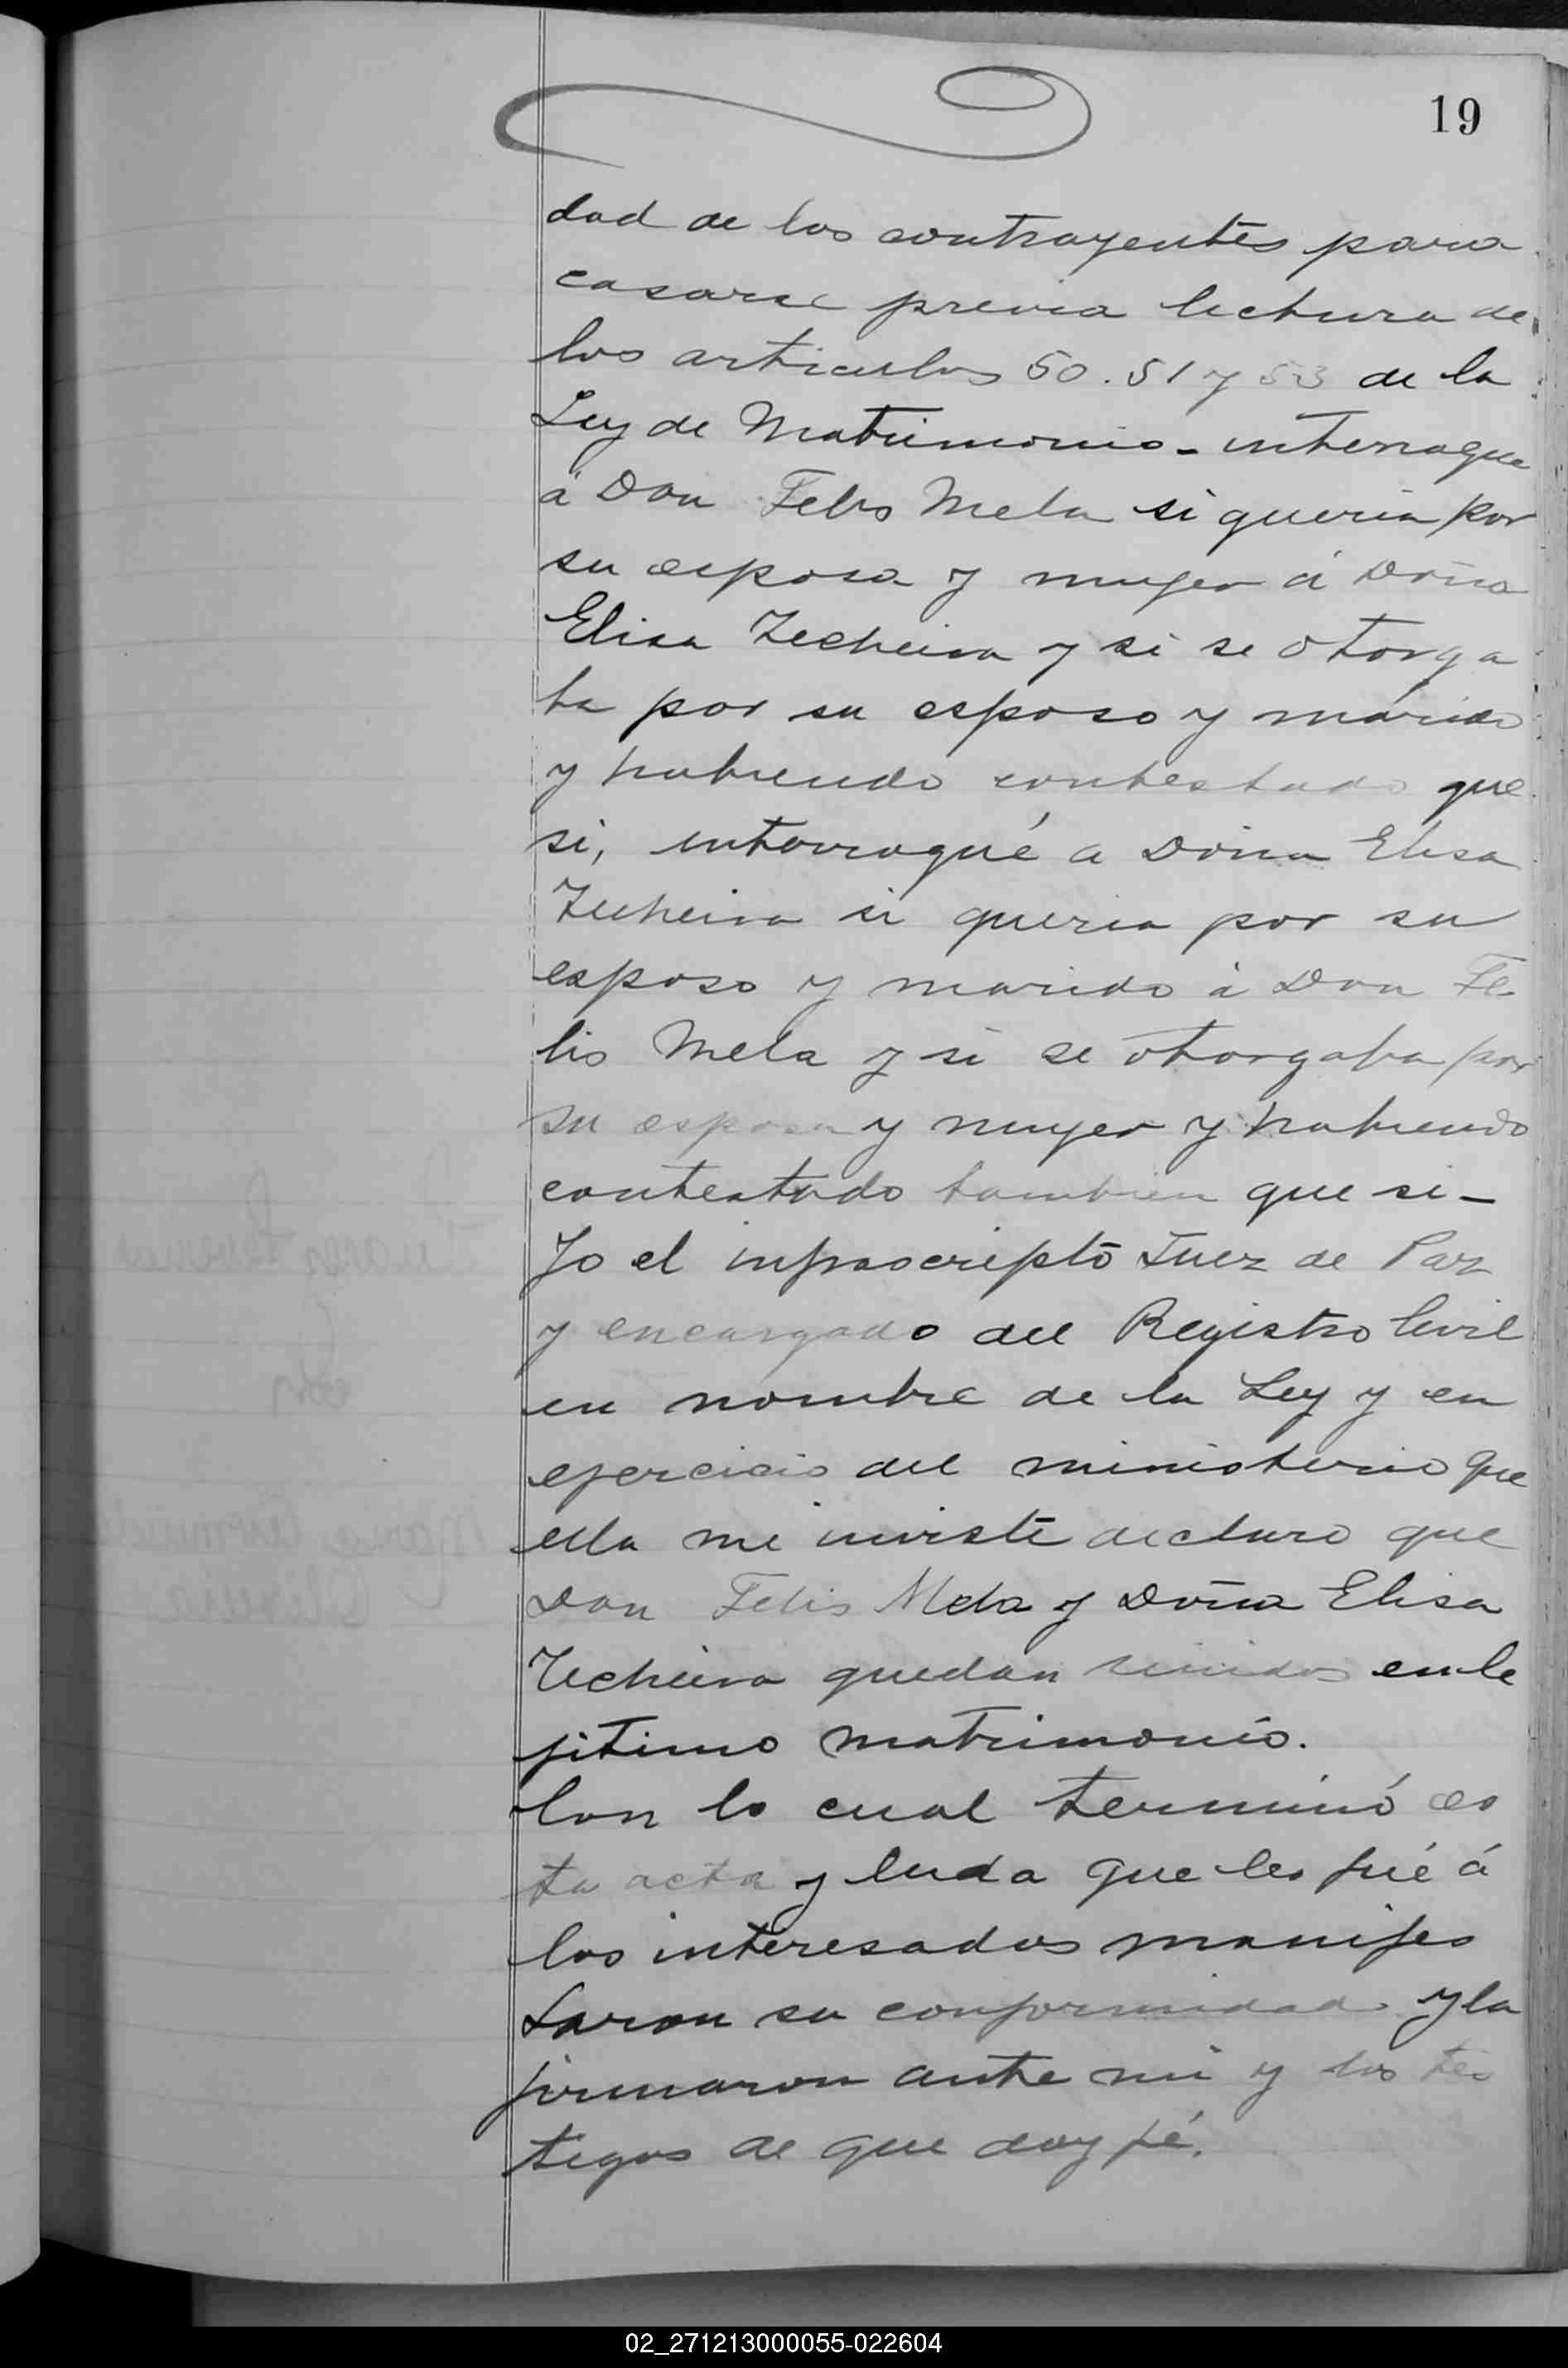 19
dad de los contrayentes para
casarse previa lectura de
los articulos 50. 51 y 53 de la
Ley de Matrimonio - interrogue
á Don Felis Mela si queria por
su esposa y muger á Doña
Elisa Techeira y si se otorga
ba por su esposo y marido
y habiendo contestado que
si, interrogué a Doña Elisa
Techeira si queria por su
esposo y marido á Don Fe
lis Mela y si se otorgaba por
su esposa y muger y habiendo
contestado tambien que si -
Yo el infrascripto Juez de Paz
y encargado del Registro Civil
en nombre de la Ley y en
ejercicio del ministerio que
ella me inviste declaro que
Don Felis Mela y Doña Elisa
Techeira quedan unidos en le
jitimo matrimonio.
Con lo cual terminó es
ta acta y leida que les fué á
los interesados manifes
taron su conformidad y la
firmaron ante mi y los tes
tigos de que doy fé.
02_271213000055-022604